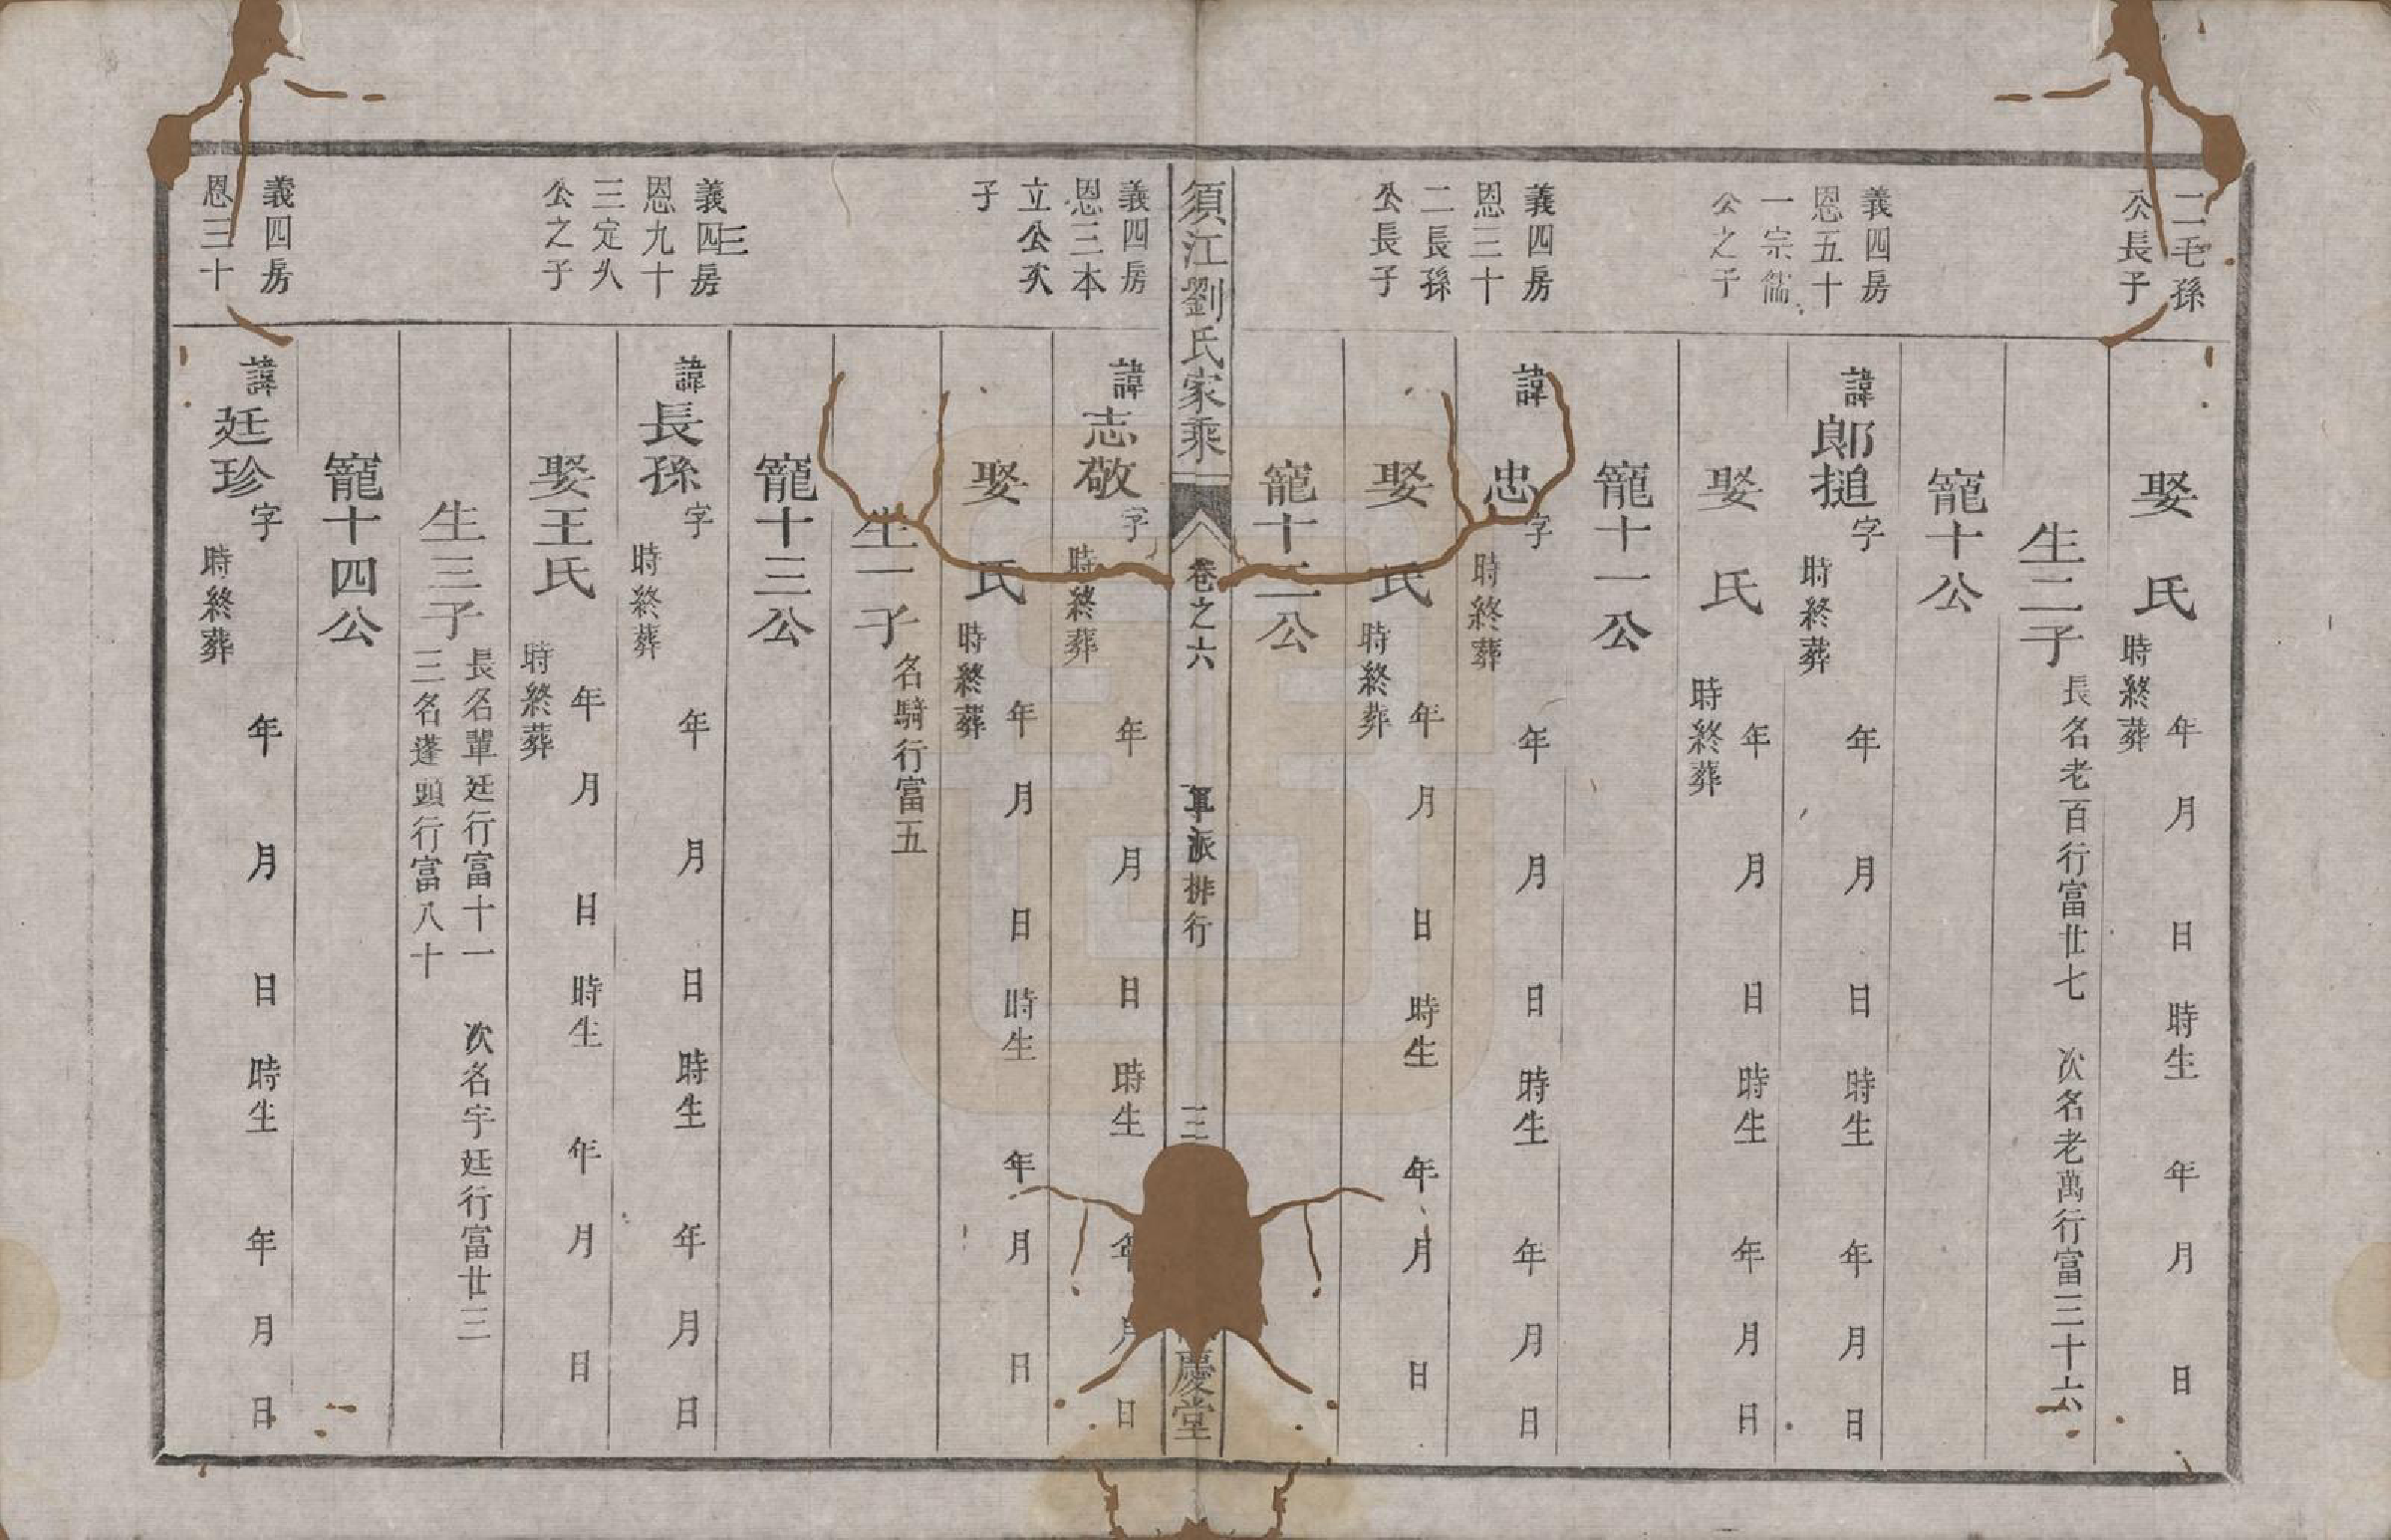 二毛孫
公長子
娶　氏　年　月　日　時生　年　月　日
時終葬
生二子　長名老百行富廿七　次名老萬行富三十六
寵十公
義四房
恩五十
一宗儒
公之子
諱郎搥字　年　月　日　時生　年　月　日
時終葬
娶　氏　年　月　日　時生　年　月　日
時終葬
寵十一公
義四房
恩三十
二長孫
公長子
諱　忠字　年　月　日　時生　年　月　日
時終葬
娶　氏　年　月　日　時生　年　月　日
時終葬
寵十二公
須江劉氏家乘　卷之六　派排行　三　慶堂
義四房
恩三本
立公次
子
諱志敬字　年　月　日　時生　年　月　日
時終葬
娶　氏　年　月　日　時生　年　月　日
時終葬
生一子　名騎行富五
寵十三公
三
義四房
恩九十
三定久
公之子
諱長孫字　年　月　日　時生　年　月　日
時終葬
娶王氏　年　月　日　時生　年　月　日
時終葬
生三子　長名輩廷行富十一　次名宇廷行富廿三
三名蓬頭行富八十
寵十四公
義四房
恩三十
諱廷珍字　年　月　日　時生　年　月　日
時終葬